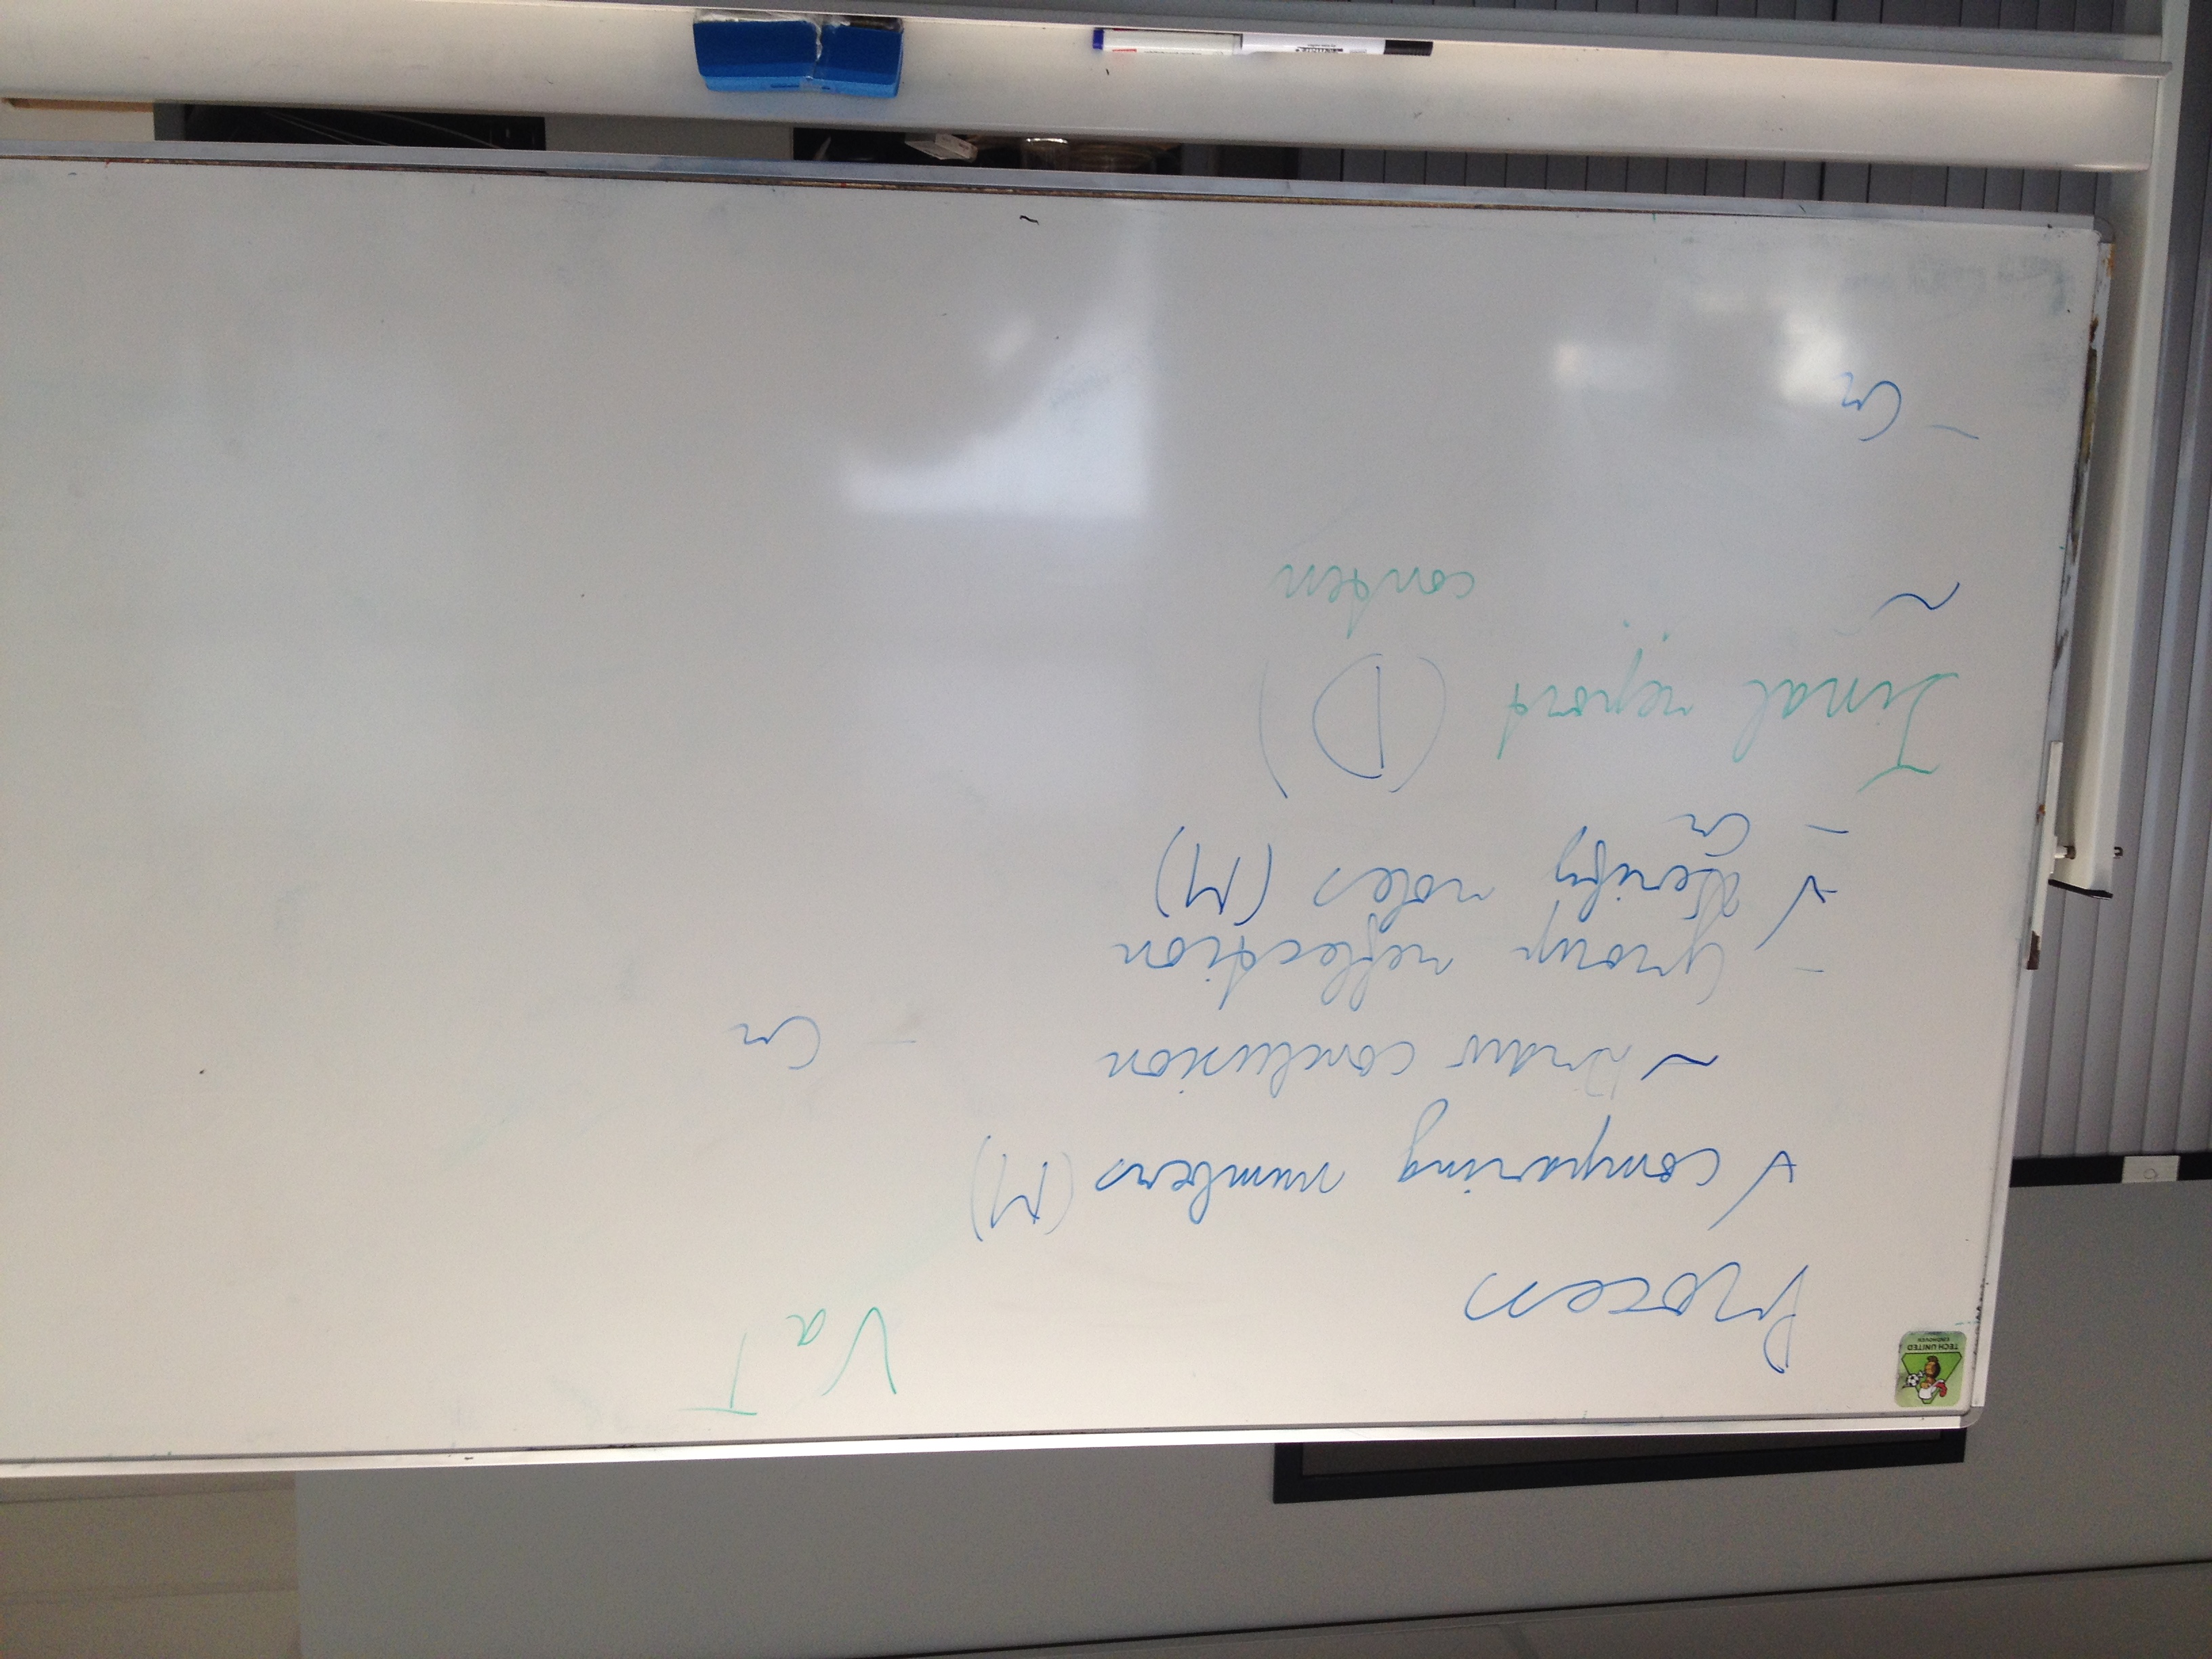 TECH UNITED
EINDHOVEN
Process
✓ comparing numbers (M)
~ Draw conclusion
- Group reflection
✓ Verify roles (M)
- Cr
Final report (D)
~ conten
- Cr
VaT
- Cr